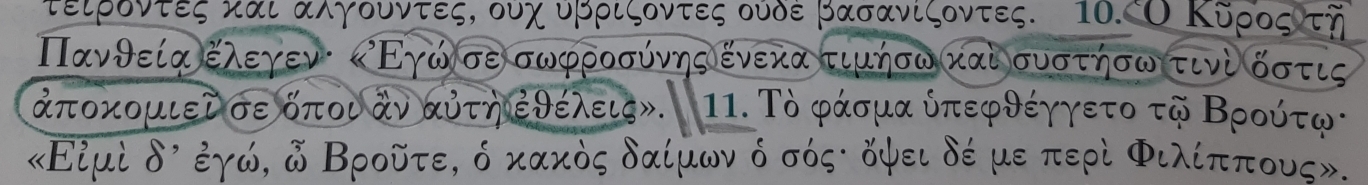 τείροντες καὶ ἀλγοῦντες, οὐχ ὑβρίζοντες οὐδὲ βασανίζοντες. 10. Ὁ Κῦρος τῇ
Πανθείᾳ ἔλεγεν· «Ἐγώ σε σωφροσύνης ἕνεκα τιμήσω καὶ συστήσω τινὶ ὅστις
ἀποκομιεῖ σε ὅποι ἂν αὐτὴ ἐθέλεις». 11. Τὸ φάσμα ὑπεφθέγγετο τῷ Βρούτῳ·
«Εἰμὶ δ’ ἐγώ, ὦ Βροῦτε, ὁ κακὸς δαίμων ὁ σός· ὄψει δέ με περὶ Φιλίππους».